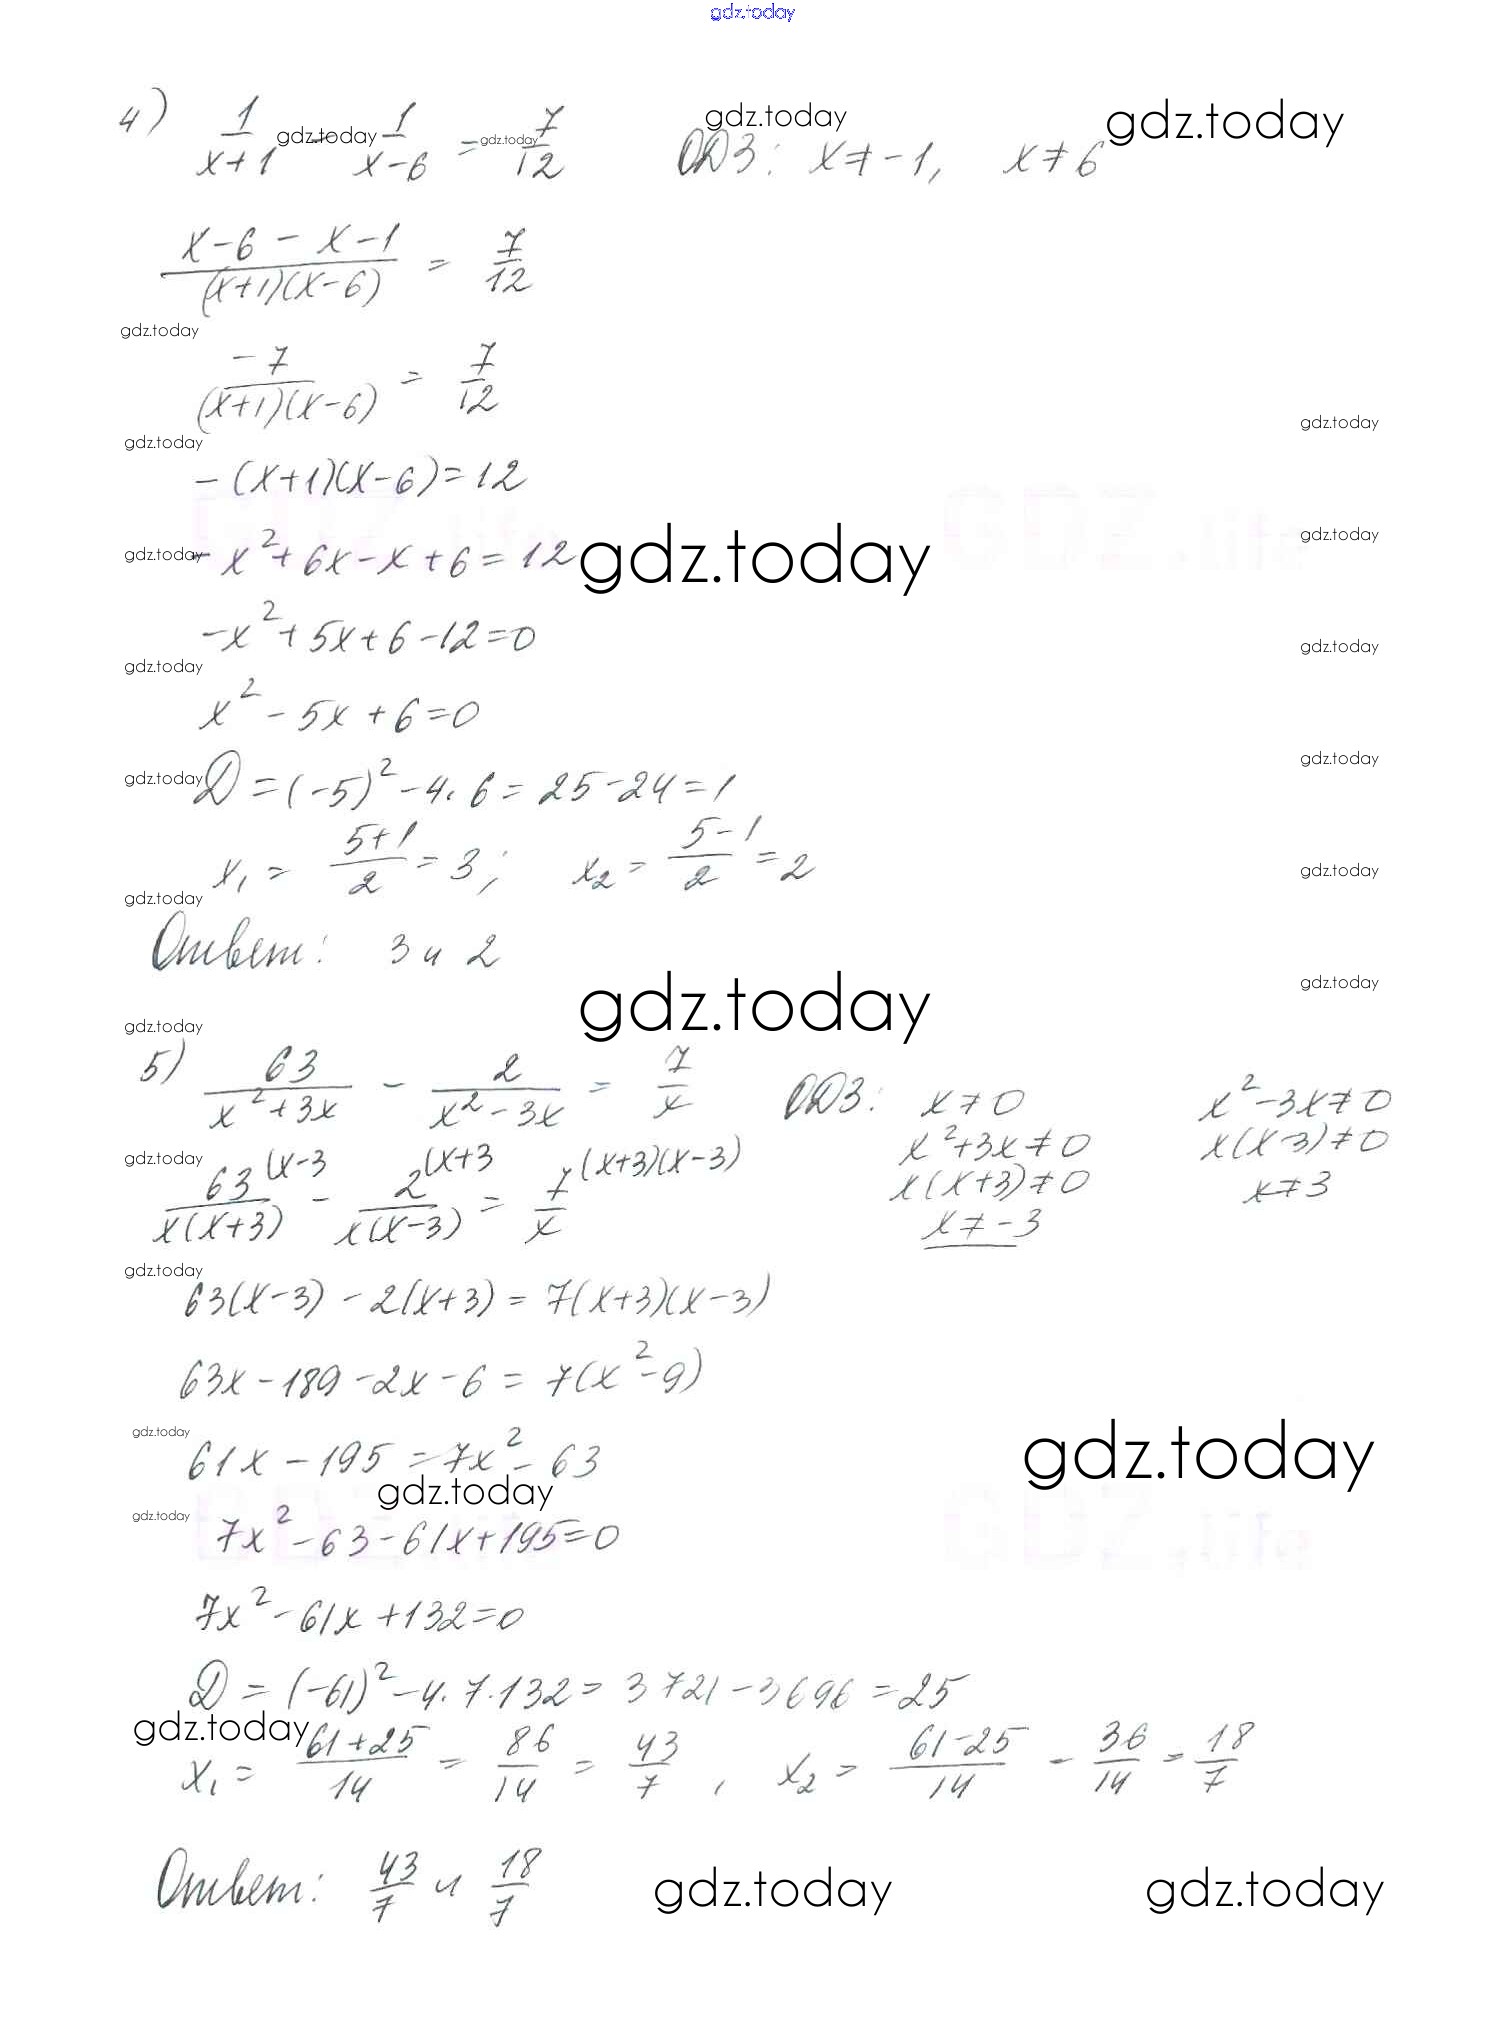 gdz.today
4) 1/(x+1) - 1/(x-6) = 7/12 ОДЗ: x≠-1, x≠6
gdz.today gdz.today gdz.today gdz.today
(x-6-x-1)/((x+1)(x-6)) = 7/12
gdz.today
-7/((x+1)(x-6)) = 7/12
gdz.today gdz.today
-(x+1)(x-6)=12
gdz.today -x²+6x-x+6=12 gdz.today gdz.today
-x²+5x+6-12=0
gdz.today gdz.today
x²-5x+6=0
gdz.today gdz.today
D=(-5)²-4·6=25-24=1
x₁= (5+1)/2 =3; x₂= (5-1)/2 =2
gdz.today gdz.today
Ответ: 3 и 2
gdz.today gdz.today
gdz.today
5) 63/(x²+3x) - 2/(x²-3x) = 7/x ОДЗ: x≠0 x²-3x≠0
x²+3x≠0 x(x-3)≠0
gdz.today
63^(x-3/(x(x+3)) - 2^(x+3/(x(x-3)) = 7^(x+3)(x-3)/x x(x+3)≠0 x≠3
x≠-3
gdz.today
63(x-3)-2(x+3)=7(x+3)(x-3)
63x-189-2x-6=7(x²-9)
gdz.today gdz.today
61x-195=7x²-63
gdz.today
gdz.today
7x²-63-61x+195=0
7x²-61x+132=0
D=(-61)²-4·7·132=3721-3696=25
gdz.today
x₁= (61+25)/14 = 86/14 = 43/7, x₂= (61-25)/14 - 36/14 = 18/7
Ответ: 43/7 и 18/7
gdz.today gdz.today